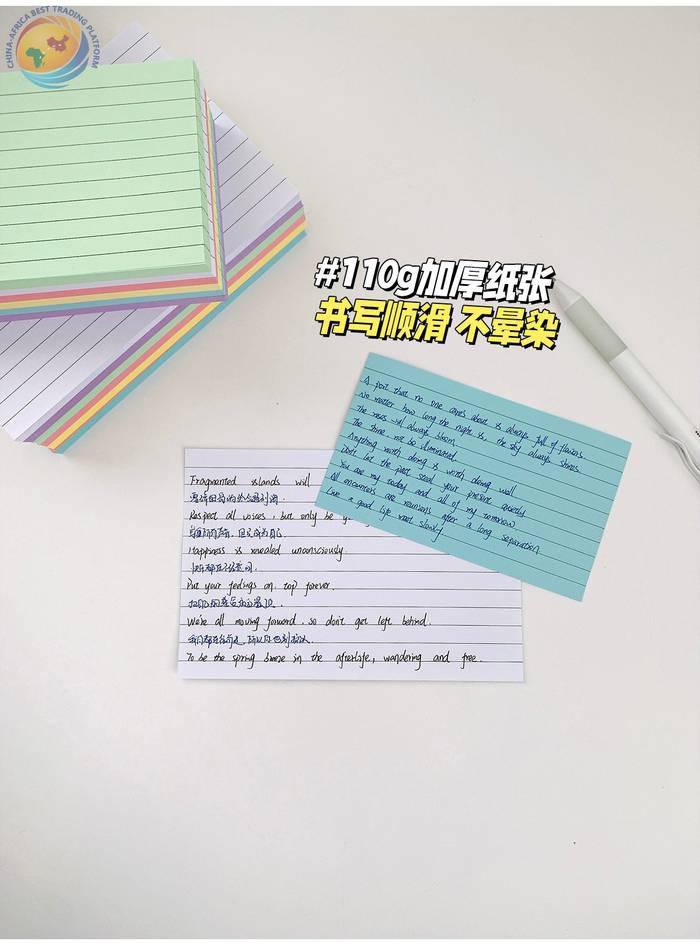 CHINA-AFRICA BEST TRADING PLATFORM
#110g加厚纸张
书写顺滑 不晕染
A poet that no one cares about is always full of flowers
No matter how long the night is, the sky always shines
The roses will always bloom
The shine not be illuminated
Anything worth doing is worth doing well
Don't let the past steal your present quietly
You are my today and all of my tomorrow
All encounters are reunions after a long separation
Live a good life meet slowly
Fragmented islands will
Respect all voices, but only be y
Happiness is revealed unconsciously
Put your feelings on top forever.
We're all moving forward, so don't get left behind.
To be the spring in the afterlife, wandering and free.